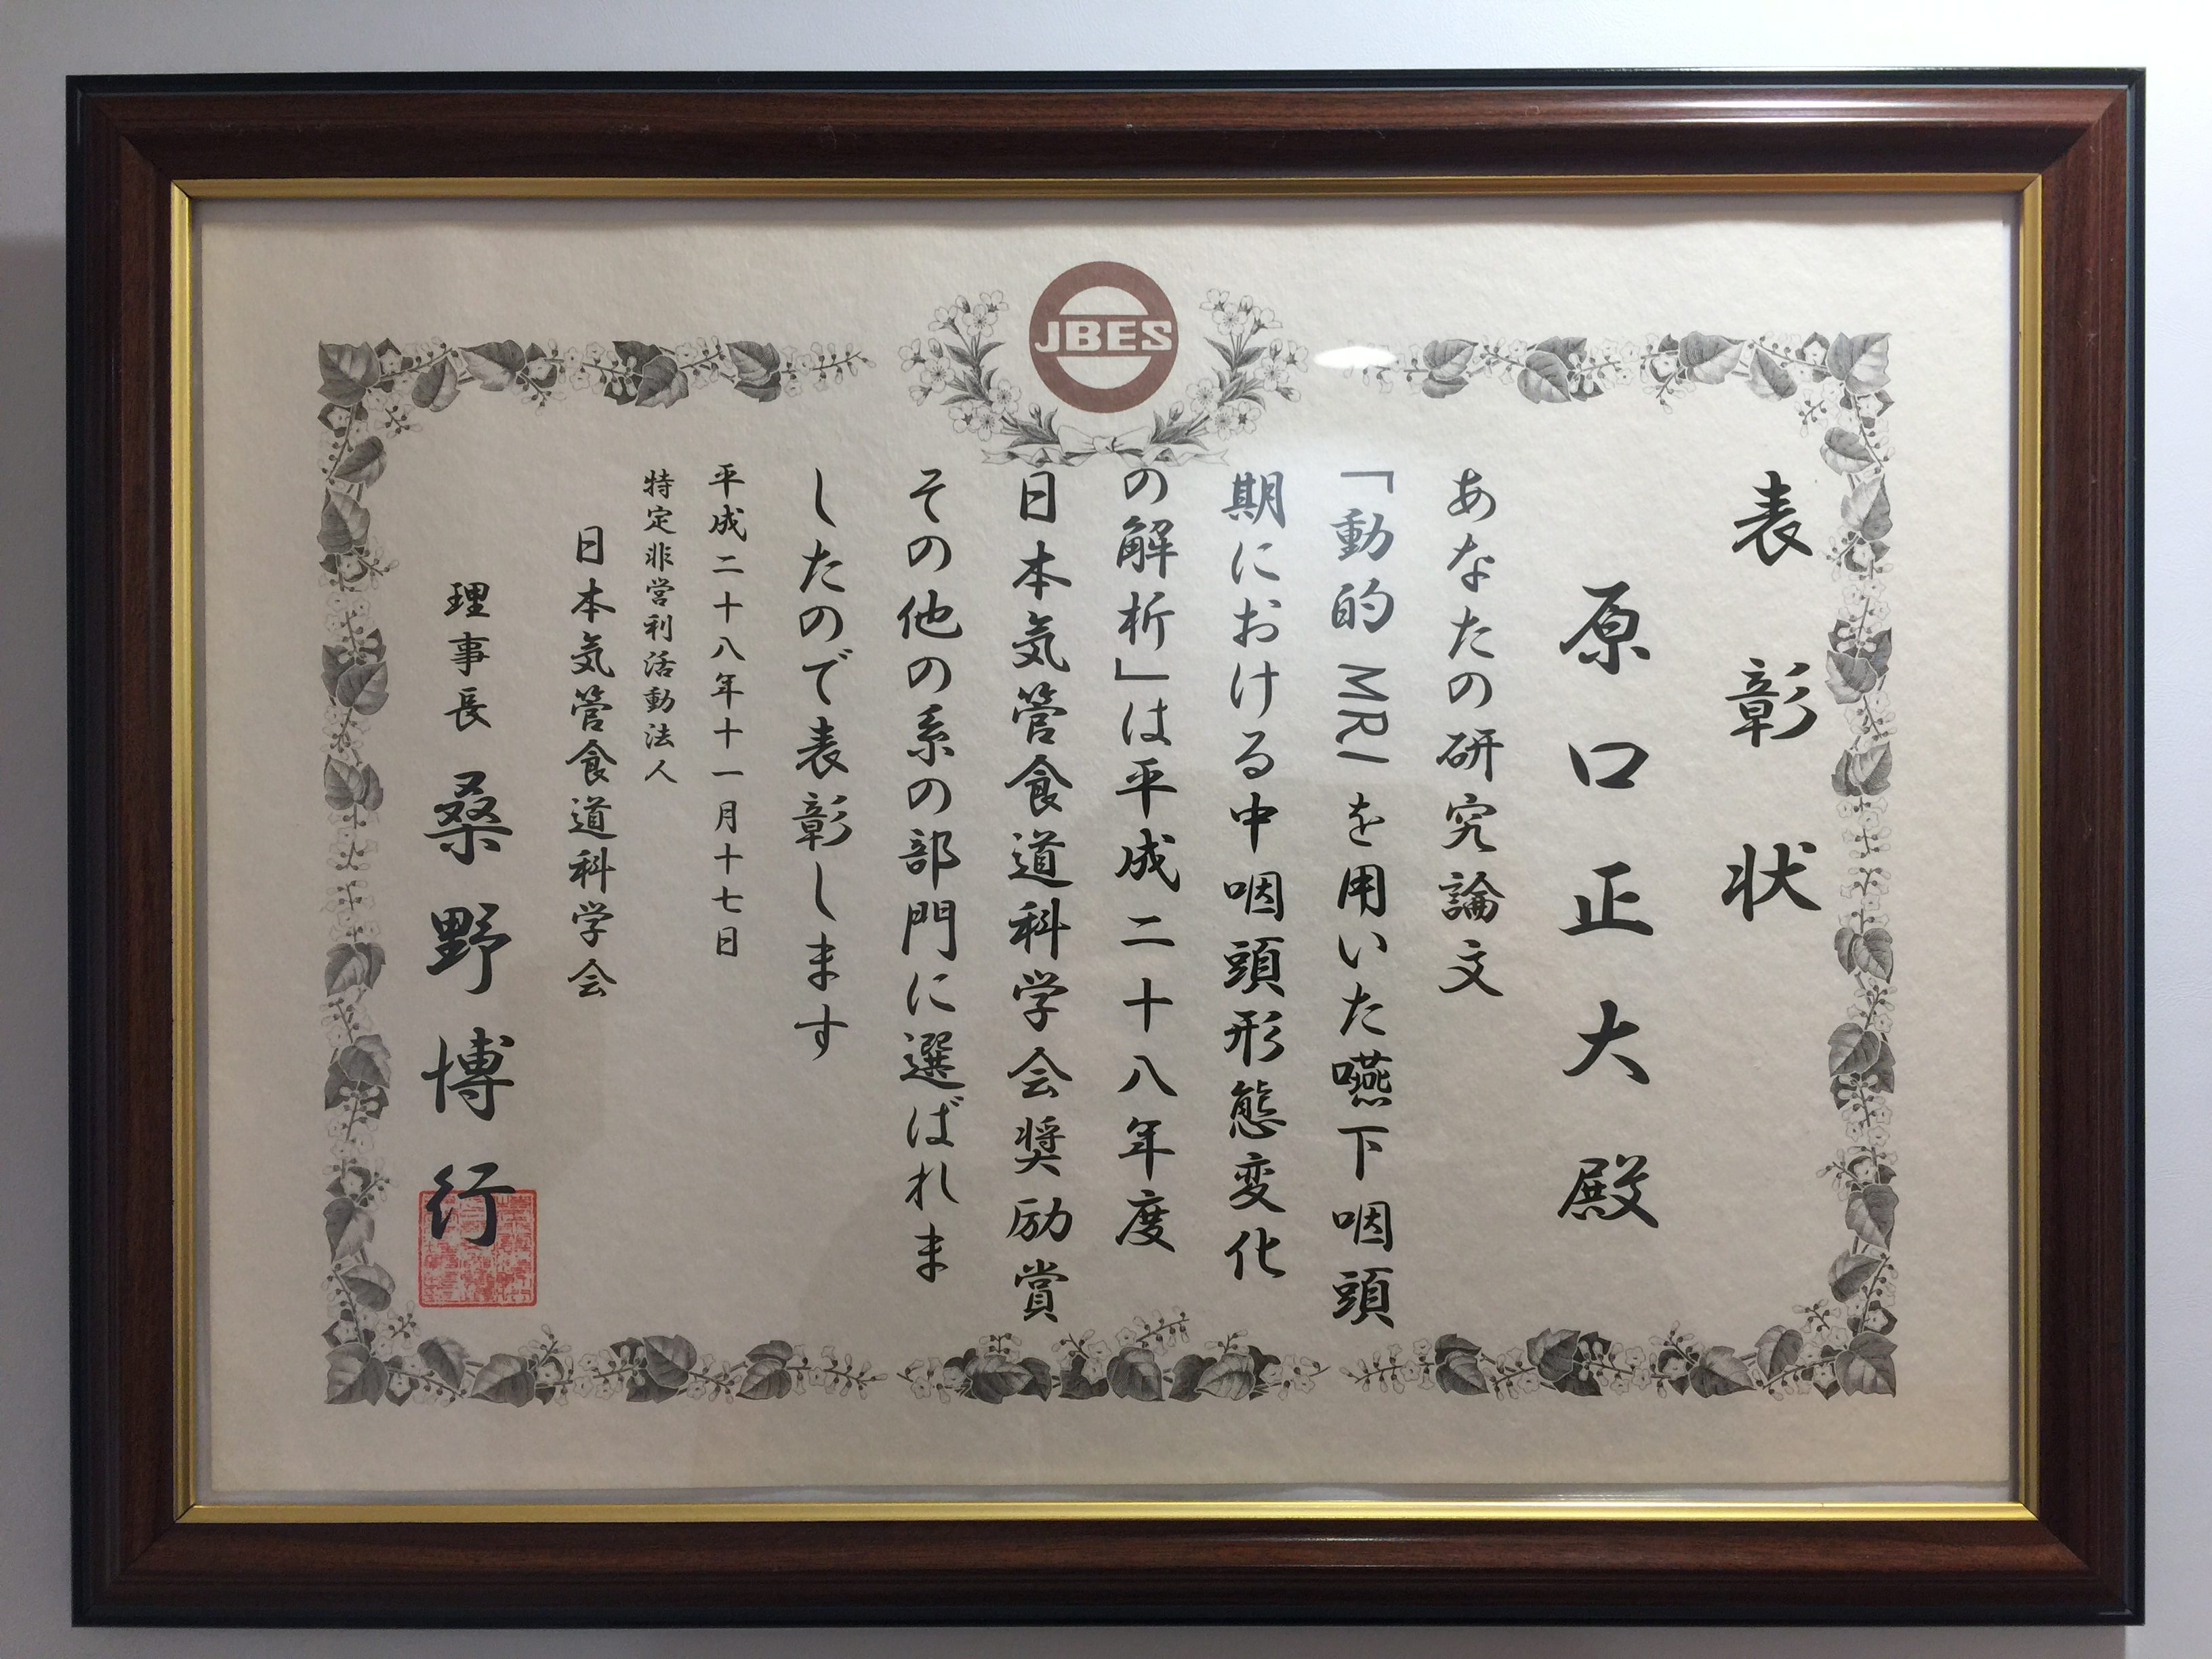 JBES
表彰状
原口正大殿
あなたの研究論文
「動的MRIを用いた嚥下咽頭
期における中咽頭形態変化
の解析」は平成二十八年度
日本気管食道科学会奨励賞
その他の系の部門に選ばれま
したので表彰します
平成二十八年十一月十七日
特定非営利活動法人
日本気管食道科学会
理事長 桑野博行